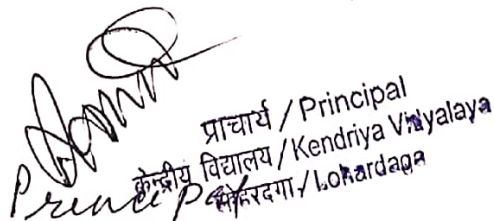 प्राचार्य / Principal
केन्द्रीय विद्यालय / Kendriya Vidyalaya
लोहरदगा / Lohardaga
Principal